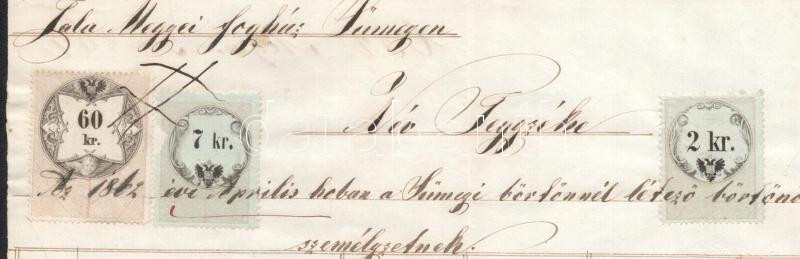 Zala Megyei fogház Sümegen
60 kr.
7 kr.
Név Jegyzéke
2 kr.
Az 1862 évi Április hoban a Sümegi börtönnél létező börtön
személyzetnek.